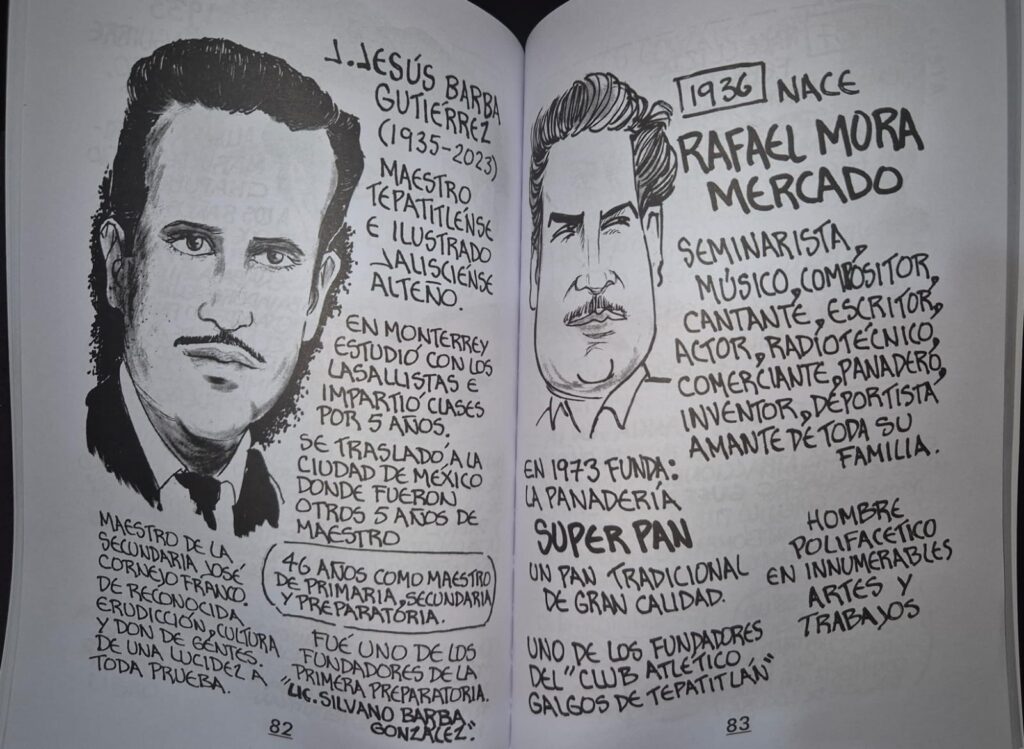 J.JESÚS BARBA
GUTIERREZ
(1935-2023)
MAESTRO
TEPATITLENSE
E ILUSTRADO
JALISCIENSE
ALTEÑO.
EN MONTERREY
ESTUDIÓ CON LOS
LASALLISTAS E
IMPARTIÓ CLASES
POR 5 AÑOS.
SE TRASLADÓ A LA
CIUDAD DE MÉXICO
DONDE FUERON
OTROS 5 AÑOS DE
MAESTRO
46 AÑOS COMO MAESTRO
DE PRIMARIA, SECUNDARIA
Y PREPARATORIA.
MAESTRO DE LA
SECUNDARIA JOSÉ
CORNEJO FRANCO.
DE RECONOCIDA
ERUDICCIÓN, CULTURA
Y DON DE GENTES.
DE UNA LUCIDEZ A
TODA PRUEBA.
FUÉ UNO DE LOS
FUNDADORES DE LA
PRIMERA PREPARATORIA.
"LIC. SILVANO BARBA
GONZALEZ".
82
1936 NACE
RAFAEL MORA
MERCADO
SEMINARISTA,
MÚSICO, COMPOSITOR,
CANTANTE, ESCRITOR,
ACTOR, RADIOTÉCNICO,
COMERCIANTE, PANADERO,
INVENTOR, DEPORTISTA
AMANTE DE TODA SU
FAMILIA.
EN 1973 FUNDA:
LA PANADERÍA
SUPER PAN
UN PAN TRADICIONAL
DE GRAN CALIDAD.
HOMBRE
POLIFACÉTICO
EN INNUMERABLES
ARTES Y
TRABAJOS
UNO DE LOS FUNDADORES
DEL "CLUB ATLÉTICO
GALGOS DE TEPATITLÁN"
83